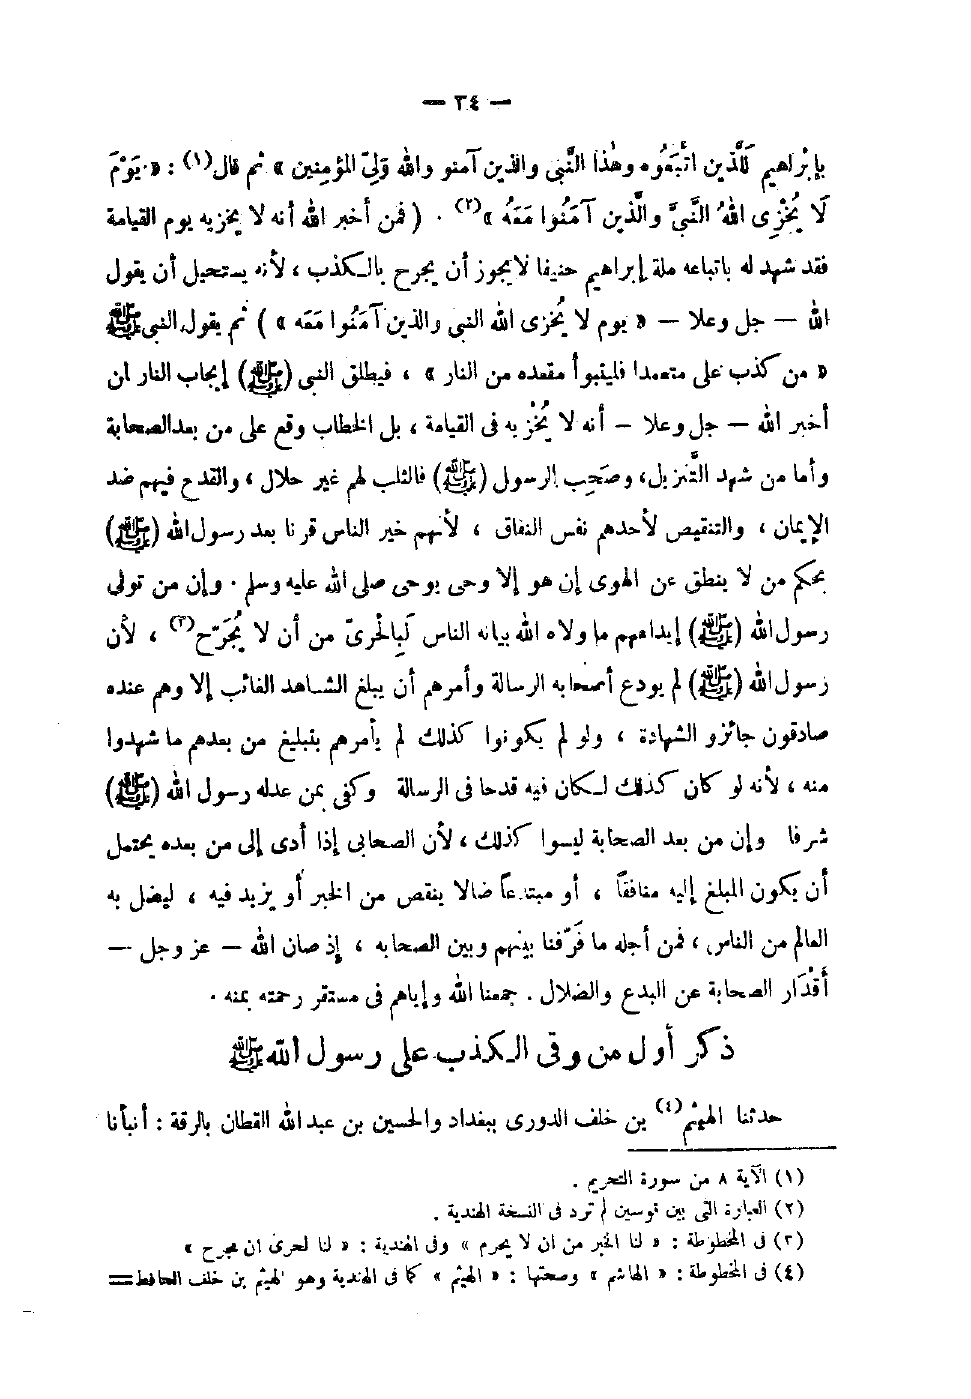 — ٣٤ —
بإبْراهيم للَّذين اتَّبَعُوه وهٰذا النَّبى والذين آمنو والله وَلِىّ المؤمِنين » ثم قال(١) : « يَوْمَ
لَا يُخْزِى اللهُ النَّبىَّ والَّذين آمَنُوا مَعَهُ »(٢) . ( فمن أخبر الله أنه لا يخزيه يوم القيامة
فقد شهد له باتباعه ملة إبراهيم حنيفا لايجوز أن يجرح بالكذب ، لأنه يستحيل أن يقول
الله — جل وعلا — « يوم لا يُخزى الله النبى والذين آمَنُوا مَعَه » ) ثم يقول النبى ﷺ
« من كذب على متعمدا فليتبوأ مقعده من النار » ، فيطلق النبى (ﷺ) إيجاب النار لمن
أخبر الله — جل وعلا — أنه لا يُخْزيه فى القيامة ، بل الخطاب وقع على من بعدالصحابة
وأما من شهد التَّنزيل، وصَحِب الرسول (ﷺ) فالثلب لهم غير حلال ، والقدح فيهم ضد
الإيمان ، والتنقيص لأحدهم نفس النفاق ، لأنهم خير الناس قرنا بعد رسول الله (ﷺ)
بحكم من لا ينطق عن الهوى إن هو إلا وحى يوحى صلى الله عليه وسلم . وإن من تولى
رسول الله (ﷺ) إيداعهم ما ولاه الله بيانه الناس لَبِالحْرىّ من أن لا يُجَرّح(٣) ، لأن
رسول الله (ﷺ) لم يودع أصحابه الرسالة وأمرهم أن يبلغ الشاهد الغائب إلا وهم عنده
صادقون جائزو الشهادة ، ولو لم يكونوا كذلك لم يأمرهم بتبليغ من بعدهم ما شهدوا
منه ، لأنه لو كان كذلك لكان فيه قدحا فى الرسالة وكفى بمن عدله رسول الله (ﷺ)
شرفا وإن من بعد الصحابة ليسوا كذلك ، لأن الصحابى إذا أدى إلى من بعده يحتمل
أن يكون المبلغ إليه منافقاً ، أو مبتدعاً ضالا ينقص من الخبر أو يزيد فيه ، ليضل به
العالم من الناس ، فمن أجله ما فَرّقنا بينهم وبين الصحابه ، إذ صان الله — عز وجل —
أَقْدَار الصحابة عن البدع والضلال . جمعنا الله وإياهم فى مستقر رحمته بمنه .
ذكر أول من وقى الكذب على رسول الله ﷺ
حدثنا الهيْثم(٤) بن خلف الدورى ببغداد والحسين بن عبد الله القطان بالرقة : أنبأنا
(١) الآية ٨ من سورة التحريم .
(٢) العبارة التى بين قوسين لم ترد فى النسخة الهندية .
(٣) فى المخطوطة : « لنا الخبر من ان لا يحرم » وفى الهندية : « لنا لحرى ان مجرح »
(٤) فى المخطوطة : « الهاشم » وصحتها : « الهيثم » كما فى الهندية وهو الهيثم بن خلف الحافظ =